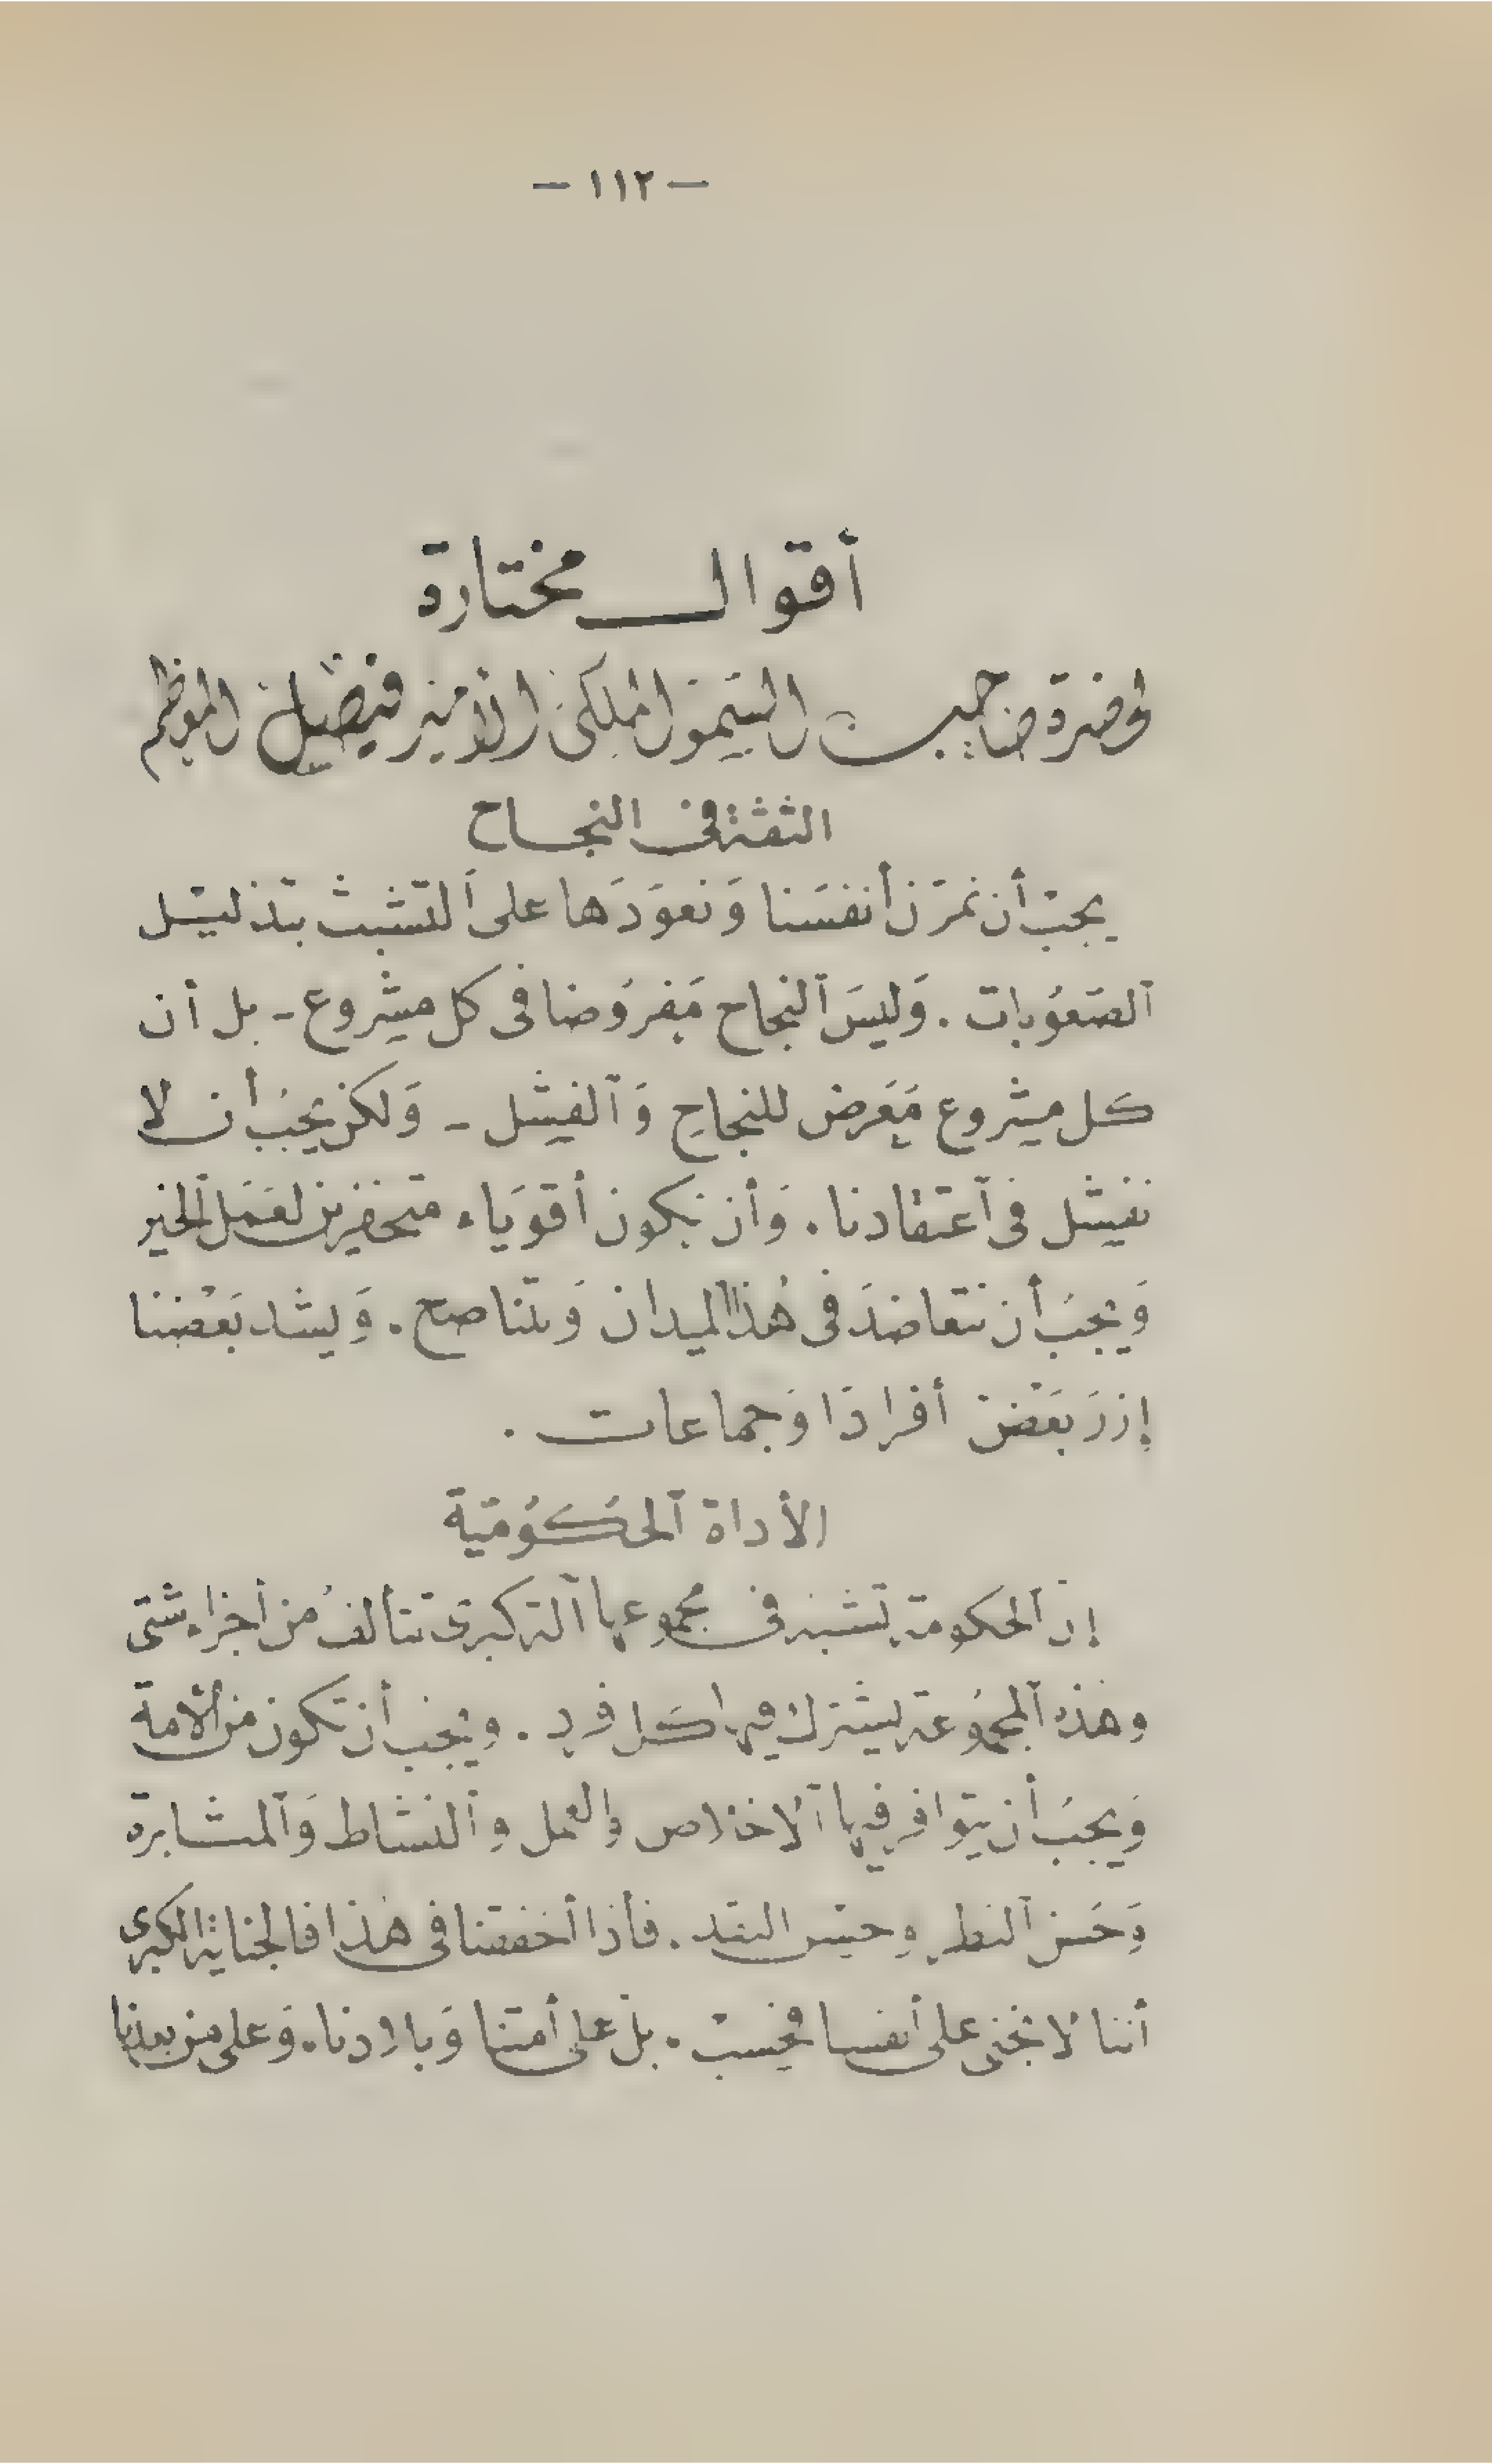 — ١١٢ —
أقوال مختارة
لحضرة صاحب السمو الملكى الأمير فيصل المعظم
الثقة فى النجاح
يجب أن نمرن أنفسنا وَنعوّدَها على ٱلتشبث بتذليل
ٱلصعُوبات . وَليسَ ٱلنجاح مَفروُضا فى كل مشروع - بل أن
كل مشروع مَعَرض للنجاح وَٱلفشل - وَلكن يجبُ أن لا
نفشل فى ٱعتقادنا . وَأن نكون أقوَياء متحفزين لعَمَل ٱلخير
وَيجبُ أن نتعاضدَ فى هٰذا الميدان وَنتناصح . وَيشد بَعْضنا
إزرَ بَعْض أفرادًا وَجماعات .
الأداة ٱلحكُوُميّة
إن ٱلحكومة تشبه فى مجموعها آلة كبرى تتألفُ من أجزاء شتى
وهذه ٱلمجمُوعة يشترك فيها كل فرد . ويجب أن تكون من ٱلأمة
وَيجبُ أن يتوافر فيها ٱلاخلاص والعمل وٱلنشاط وَٱلمثابرة
وَحَسن ٱلنظر وحسن النقد . فأذا أخفقنا فى هٰذا فالجناية الكبرى
أننا لا نجنى على أنفسنا فحسب . بل على أمتنا وَبلادنا . وَعلى من بعدنا